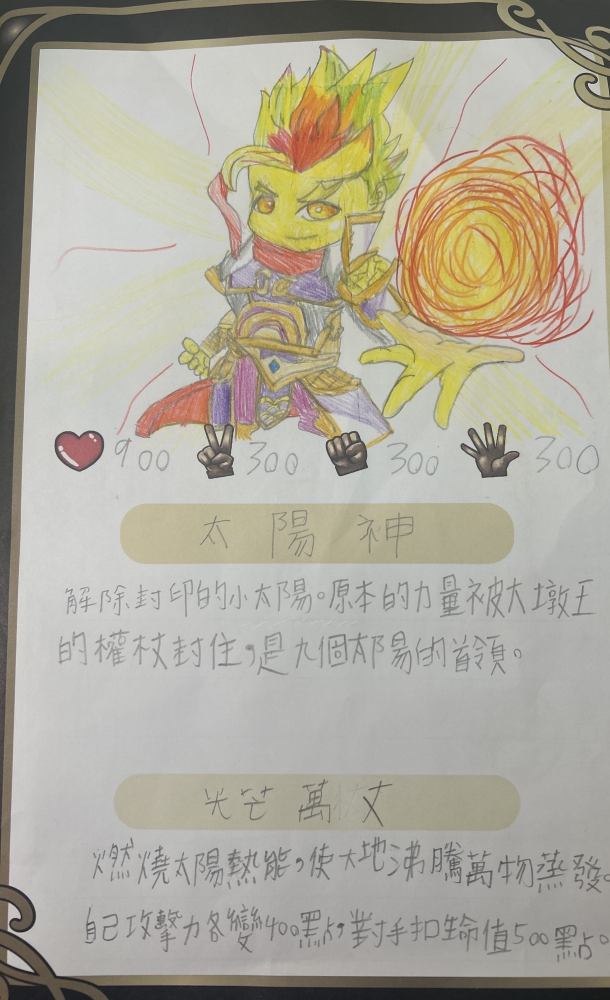 900 300 300 300
太陽神
解除封印的小太陽。原本的力量被大墩王
的權杖封住,是九個太陽的首領。
光芒萬丈
燃燒太陽熱能,使大地沸騰萬物蒸發。
自己攻擊力各變400點,對手扣生命值500點。